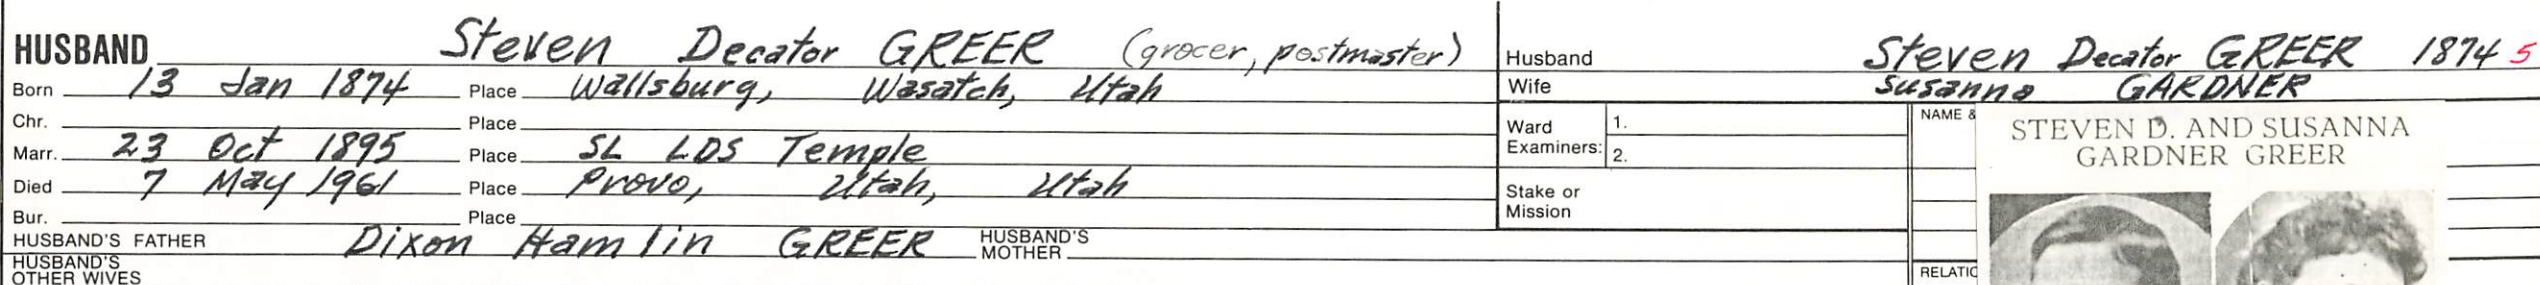 HUSBAND Steven Decator GREER (grocer, postmaster)
Born 13 Jan 1874 Place Wallsburg, Wasatch, Utah
Chr. Place
Marr. 23 Oct 1895 Place SL LDS Temple
Died 7 May 1961 Place Provo, Utah, Utah
Bur. Place
HUSBAND'S FATHER Dixon Hamlin GREER HUSBAND'S MOTHER
HUSBAND'S OTHER WIVES
Husband Steven Decator GREER 1874 5
Wife Susanna GARDNER
Ward Examiners: 1.
2.
Stake or Mission
NAME &
STEVEN D. AND SUSANNA
GARDNER GREER